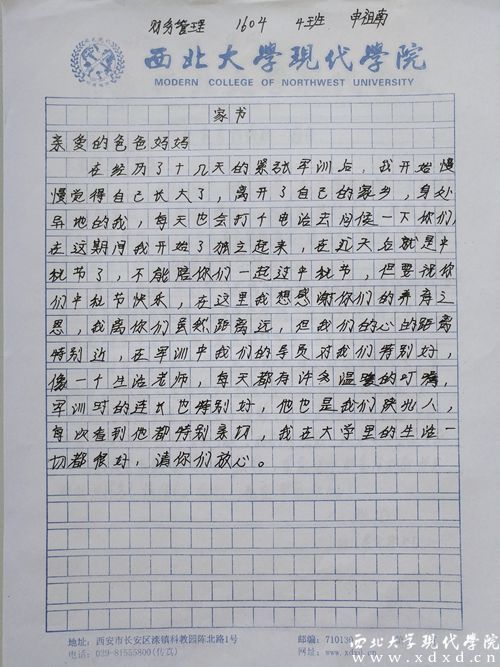 财务管理 1604 4班 申祖南
西北大学现代学院
MODERN COLLEGE OF NORTHWEST UNIVERSITY
家书
亲爱的爸爸妈妈
在经历了十几天的紧张军训后，我开始慢
慢觉得自己长大了，离开了自己的家乡，身处
异地的我，每天也会打个电话去问候一下你们，
在这期间我开始了独立起来，在几天后就是中
秋节了，不能陪你们一起过中秋节，但要说你
们中秋节快乐，在这里我想感谢你们的养育之
恩，我离你们虽然距离远，但我们的心的距离
特别近，在军训中我们的导员对我们特别好，
像一个生活老师，每天都有许多温暖的叮嘱，
军训时的连长也特别好，他也是我们陕北人，
每次看到他都特别亲切，我在大学里的生活一
切都很好，请你们放心。
地址：西安市长安区滦镇科教园陈北路1号 邮编：71013
电话：029-81555800(传真) 网址：www.xdxd.
西北大学现代学院
www.xdxd.cn